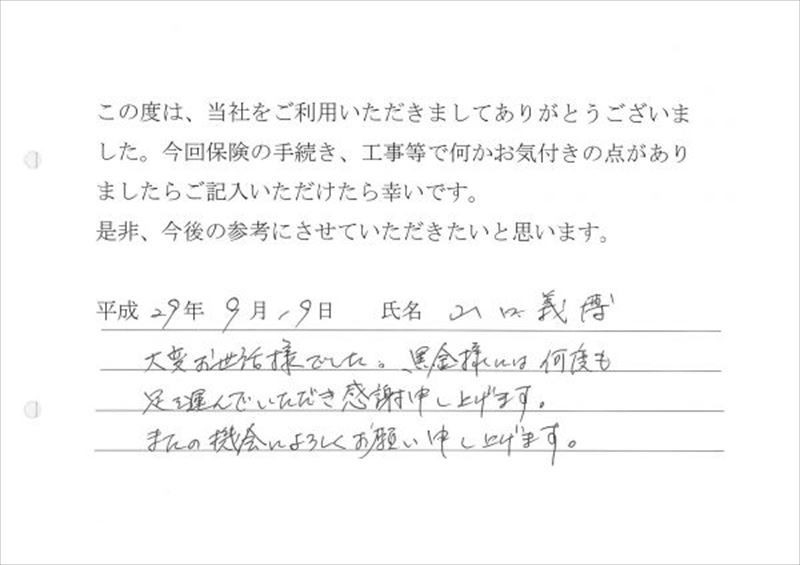 この度は、当社をご利用いただきましてありがとうございま
した。今回保険の手続き、工事等で何かお気付きの点があり
ましたらご記入いただけたら幸いです。
是非、今後の参考にさせていただきたいと思います。
平成 29年 9月 19日 氏名 山口義博
大変お世話様でした。黒金様には何度も
足を運んでいただき感謝申し上げます。
またの機会によろしくお願い申し上げます。